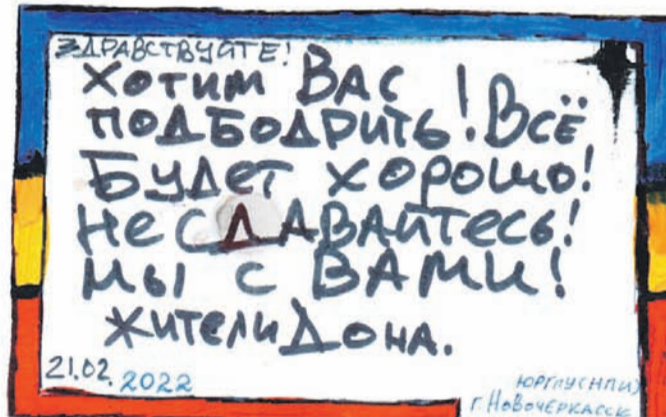 ЗДРАВСТВУЙТЕ!
ХОТИМ ВАС
ПОДБОДРИТЬ! ВСЁ
БУДЕТ ХОРОШО!
НЕ СДАВАЙТЕСЬ!
МЫ С ВАМИ!
ЖИТЕЛИ ДОНА.
21.02. 2022
ЮРГПУ(НПИ)
г. НОВОЧЕРКАССК